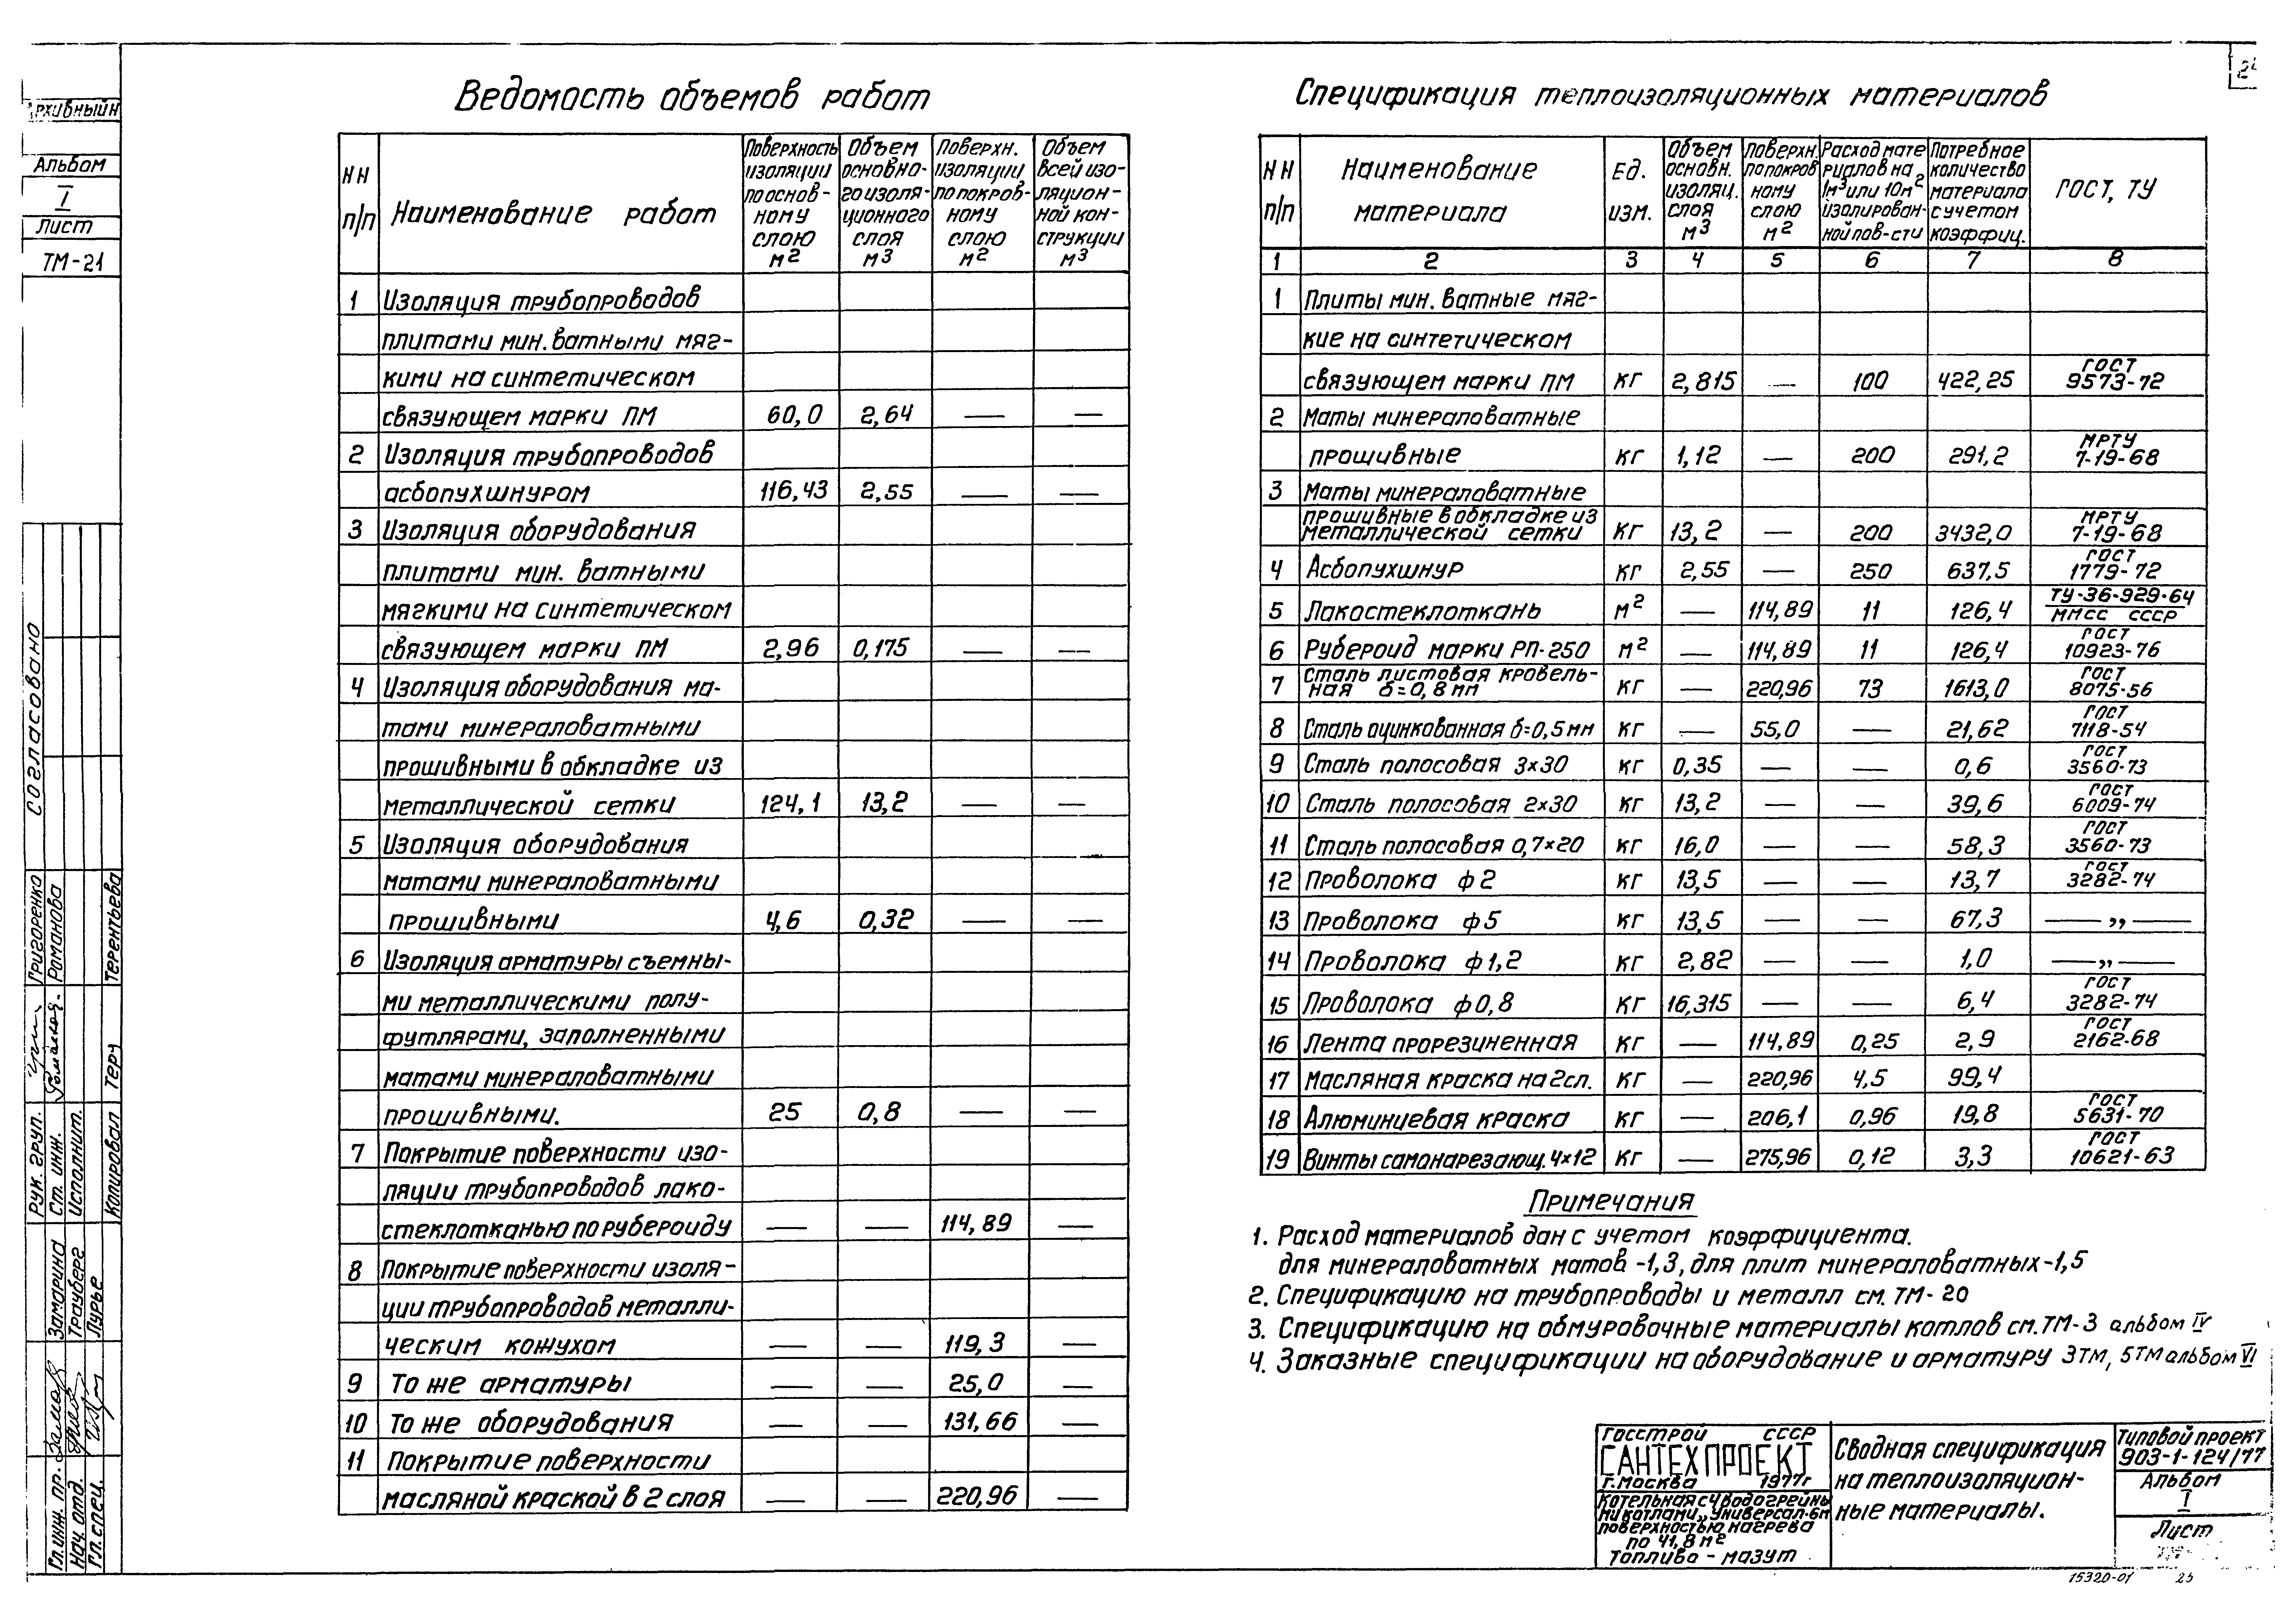 Архивный н
Альбом
I
Лист
ТМ-21
Согласовано
Григоренко
Романова
Терентьева
Теру
Рук. груп.
Ст. инж.
Исполнит.
Копировал
Замарина
Трауберг
Лурье
Гл. инж. пр.
Нач. отд.
Гл. спец.
Ведомость объемов работ
NN п/п | Наименование работ | Поверхность изоляции по основному слою м2 | Объем основного изоляционного слоя м3 | Поверхн. изоляции по покровному слою м2 | Объем всей изоляционной конструкции м3
1 Изоляция трубопроводов
плитами мин. ватными мяг-
кими на синтетическом
связующем марки ПМ 60,0 2,64 — —
2 Изоляция трубопроводов
асбопухшнуром 116,43 2,55 — —
3 Изоляция оборудования
плитами мин. ватными
мягкими на синтетическом
связующем марки ПМ 2,96 0,175 — —
4 Изоляция оборудования ма-
тами минераловатными
прошивными в обкладке из
металлической сетки 124,1 13,2 — —
5 Изоляция оборудования
матами минераловатными
прошивными 4,6 0,32 — —
6 Изоляция арматуры съемны-
ми металлическими полу-
футлярами, заполненными
матами минераловатными
прошивными. 25 0,8 — —
7 Покрытие поверхности изо-
ляции трубопроводов лако-
стеклотканью по рубероиду — — 114,89 —
8 Покрытие поверхности изоля-
ции трубопроводов металли-
ческим кожухом — — 119,3 —
9 То же арматуры — — 25,0 —
10 То же оборудования — — 131,66 —
11 Покрытие поверхности
масляной краской в 2 слоя — — 220,96 —
Спецификация теплоизоляционных материалов
NN п/п | Наименование материала | Ед. изм. | Объем основн. изоляц. слоя м3 | Поверхн. по покровному слою м2 | Расход материалов на 1м3 или 10м2 изолированной пов-сти | Потребное количество материала с учетом коэффиц. | ГОСТ, ТУ
1 2 3 4 5 6 7 8
1 Плиты мин. ватные мяг-
кие на синтетическом
связующем марки ПМ кг 2,815 — 100 422,25 ГОСТ 9573-72
2 Маты минераловатные
прошивные кг 1,12 — 200 291,2 МРТУ 7-19-68
3 Маты минераловатные
прошивные в обкладке из
металлической сетки кг 13,2 — 200 3432,0 МРТУ 7-19-68
4 Асбопухшнур кг 2,55 — 250 637,5 ГОСТ 1779-72
5 Лакостеклоткань м2 — 114,89 11 126,4 ТУ-36-929-64 ММСС СССР
6 Рубероид марки РП-250 м2 — 114,89 11 126,4 ГОСТ 10923-76
7 Сталь листовая кровель-
ная δ=0,8мм кг — 220,96 73 1613,0 ГОСТ 8075-56
8 Сталь оцинкованная δ=0,5мм кг — 55,0 — 21,62 ГОСТ 7118-54
9 Сталь полосовая 3×30 кг 0,35 — — 0,6 ГОСТ 3560-73
10 Сталь полосовая 2×30 кг 13,2 — — 39,6 ГОСТ 6009-74
11 Сталь полосовая 0,7×20 кг 16,0 — — 58,3 ГОСТ 3560-73
12 Проволока ф2 кг 13,5 — — 13,7 ГОСТ 3282-74
13 Проволока ф5 кг 13,5 — — 67,3 — „ —
14 Проволока ф1,2 кг 2,82 — — 1,0 — „ —
15 Проволока ф0,8 кг 16,315 — — 6,4 ГОСТ 3282-74
16 Лента прорезиненная кг — 114,89 0,25 2,9 ГОСТ 2162-68
17 Масляная краска на 2сл. кг — 220,96 4,5 99,4
18 Алюминиевая краска кг — 206,1 0,96 19,8 ГОСТ 5631-70
19 Винты самонарезающ. 4×12 кг — 275,96 0,12 3,3 ГОСТ 10621-63
Примечания
1. Расход материалов дан с учетом коэффициента.
для минераловатных матов -1,3, для плит минераловатных-1,5
2. Спецификацию на трубопроводы и металл см. ТМ-20
3. Спецификацию на обмуровочные материалы котлов см. ТМ-3 альбом IV
4. Заказные спецификации на оборудование и арматуру 3ТМ, 5ТМ альбом VI
Госстрой СССР
САНТЕХПРОЕКТ
г. Москва 1977г
Котельная с 4 водогрейны-
ми котлами „Универсал-6м
поверхностью нагрева
по 41,8 м2
Топливо - мазут
Сводная спецификация
на теплоизоляцион-
ные материалы.
Типовой проект
903-1-124/77
Альбом
I
Лист
15320-01 25